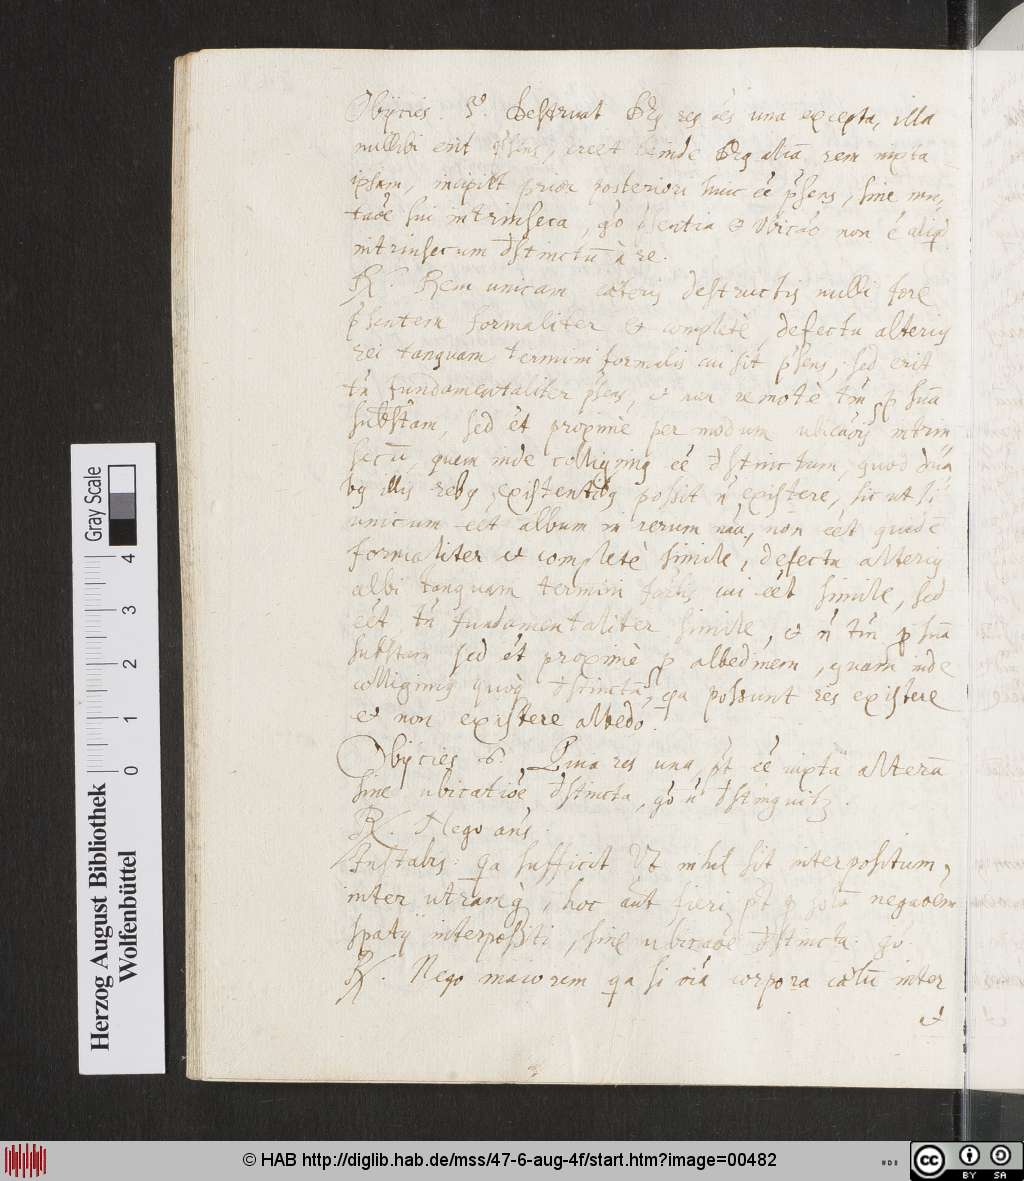 Obijcies. 5º. Destruat Ds res oe͂s una excepta, illa
nullibi erit p͂sens, creet deinde Ds aliā rem iuxta
ipsam, incipiet prior posteriori huic ēe p͂sens, sine mu-
taōe sui intrinseca, g̊o p͂sentia et Ubicāo non ē aliqd
intrinsecum dstinctū à re.
R. Rem unicam caeteris destructis nullibi fore
p͂sentem formaliter et completè, defectu alterius
rei tanquam termini formalis cui sit p͂sens, sed erit
tn̄ fundamentaliter p͂sens, et non remotè tm̄ p suā
subst̄am, sed ēt proximè per modum ubicāōis intrin
secū, quem inde colligimus ēe dstinctum, quod dua
bus illis rebus existentibus possit n̄ existere, sicut si
unicum eēt album in rerum naā, non eēt quidē
formaliter et completè simile, defectu alterius
albi tanquam termini forlis cui eēt simile, sed
eēt tn̄ fundamentaliter simile, et n̄ tm̄ p suā
subst̄am sed ēt proximè p albedinem, quam inde
colligimus quoq dstinctā, qa possunt res existere
et non existere albedo.
Obijcies 6. Una res una pt ēe iuxta alterā
sine ubicatiōe dstincta, g̊o n̄ dstinguitur.
R. Nego ans.
Instabis: qa sufficit Ut nihil sit interpositum,
inter utramq, hoc aūt fieri pt p solā negaōem
spatij interpositi, sine ubicaōe dstincta. go.
R. Nego maiorem qa si oīa corpora caelū inter
et
Herzog August Bibliothek
Wolfenbüttel
Gray Scale
0 1 2 3 4
© HAB http://diglib.hab.de/mss/47-6-aug-4f/start.htm?image=00482
cc BY SA